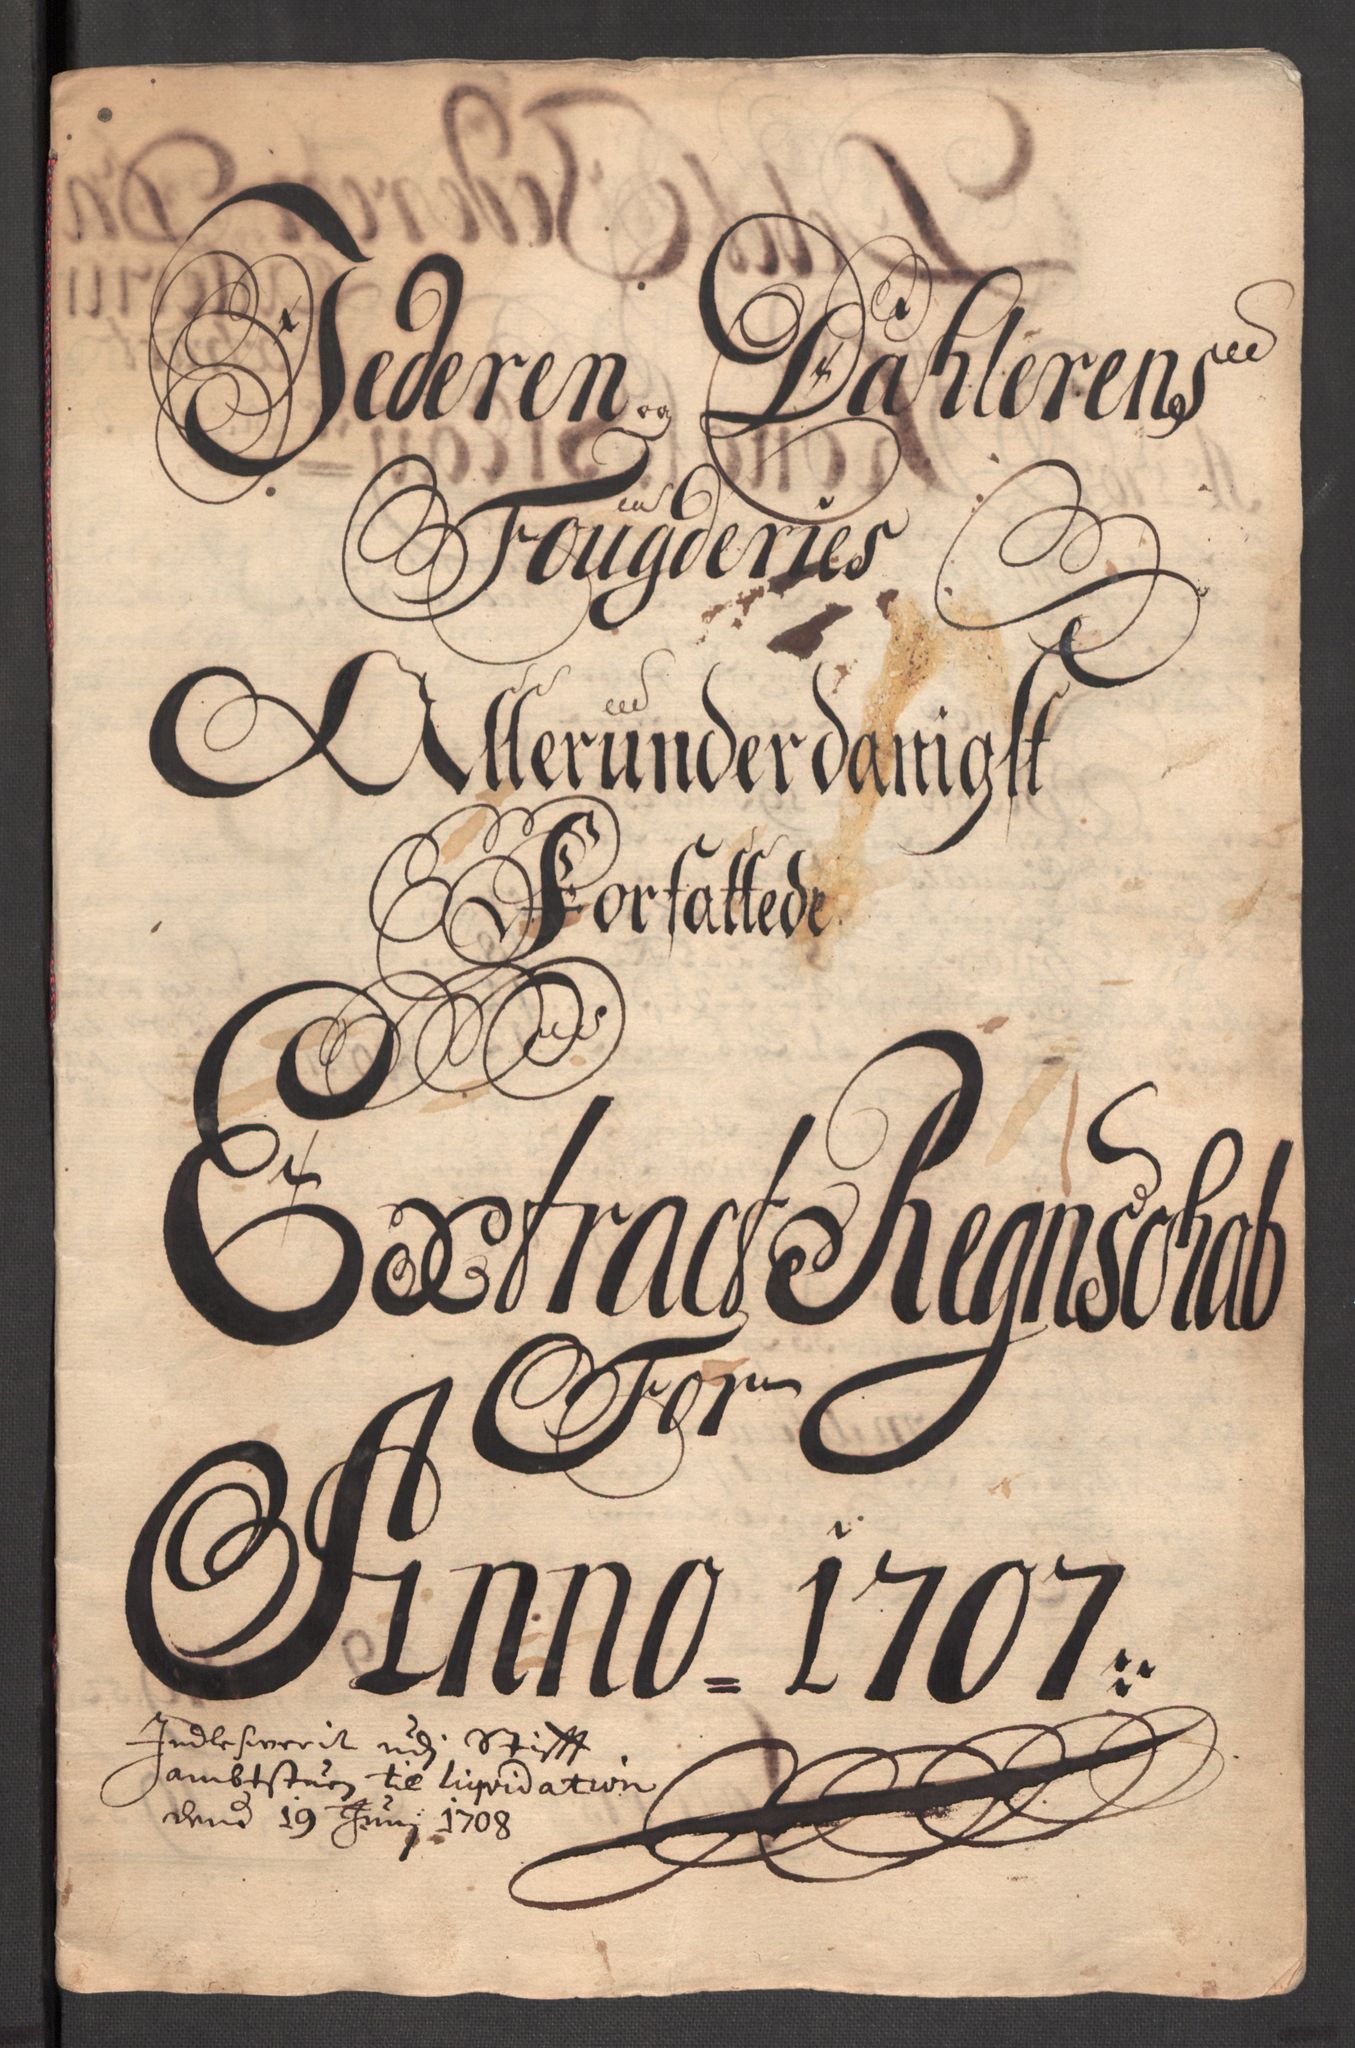 Jederen og Dahlerens
Fougderies
Allerunderdanigst
Forfattede
Extract Regnschab
For
Anno = 1707
Indlefwerit udj Stifft
ambtstuen till liqvidation
dend 19 Junj 1708